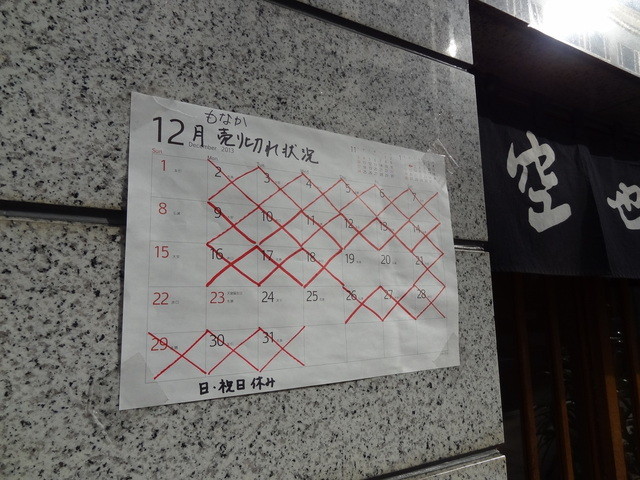 もなか
12月 売り切れ状況
December 2013
11
Sun Mon
1 2 3 4 5 6 7
8 9 10 11 12 13 14
15 16 17 18 19 20 21
22 23 24 25 26 27 28
29 30 31
日・祝日休み
空也